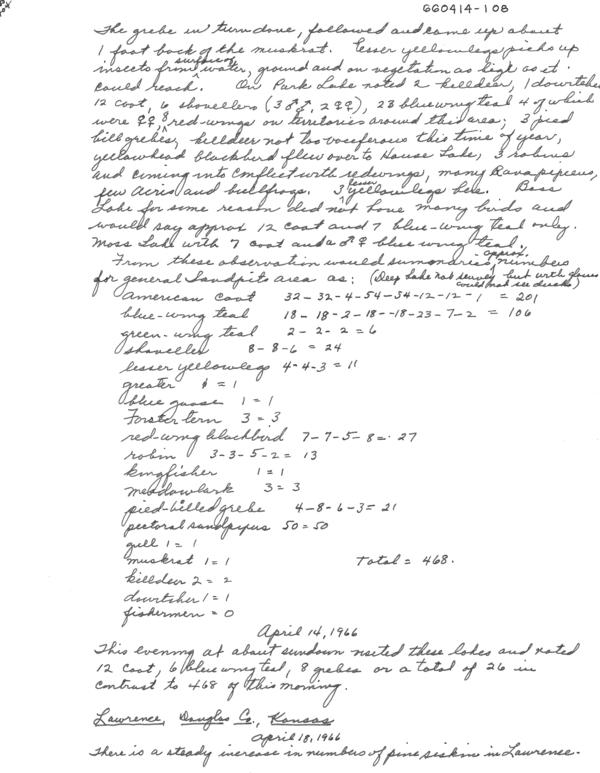 660414-108
The grebe in turn dove, followed and came up about
1 foot back of the muskrat. Lesser yellowlegs picks up
insects from surface of water, ground and on vegetation as high as it
could reach. On Park Lake noted 2 killdeer, 1 dowitcher
12 coot, 6 shovellers (3 ♂♂, 2 ♀♀), 23 bluewing teal 4 of which
were ♀♀, 8 red-wings on territories around this area; 3 pied
bill grebes, killdeer not too vociferous this time of year,
yellowhead blackbird flew over to House Lake, 3 robins
and coming into conflict with redwings, many Rana pipiens,
few Acris and bullfrogs. 3 lesser yellowlegs here. Bass
Lake for some reason did not have many birds and
would say approx 12 coot and 7 blue-wing teal only.
Moss Lake with 7 coot and a ♂ ♀ blue wing teal.
From these observation would summarize approx. numbers
for general Sandpits area as: (Deep Lake not survey but with
could not see ducks)
American coot 32-32-4-54-54-12-12-1 = 201
blue-wing teal 18-18-2-18-18-23-7-2 = 106
green-wing teal 2-2-2=6
shoveller 8-8-6 = 24
lesser yellowlegs 4-4-3 = 11
greater 1 = 1
blue goose 1 = 1
Forster tern 3 = 3
red-wing blackbird 7-7-5-8 = 27
robin 3-3-5-2 = 13
kingfisher 1 = 1
meadowlark 3 = 3
pied-billed grebe 4-8-6-3 = 21
pectoral sandpipers 50 = 50
gull 1 = 1
muskrat 1 = 1 Total = 468.
killdeer 2 = 2
dowitcher 1 = 1
fishermen = 0
April 14, 1966
This evening at about sundown visited these lakes and noted
12 coot, 6 blue wing teal, 8 grebes or a total of 26 in
contrast to 468 of this morning.
Lawrence, Douglas Co., Kansas
April 18, 1966
There is a steady increase in numbers of pine siskin in Lawrence.